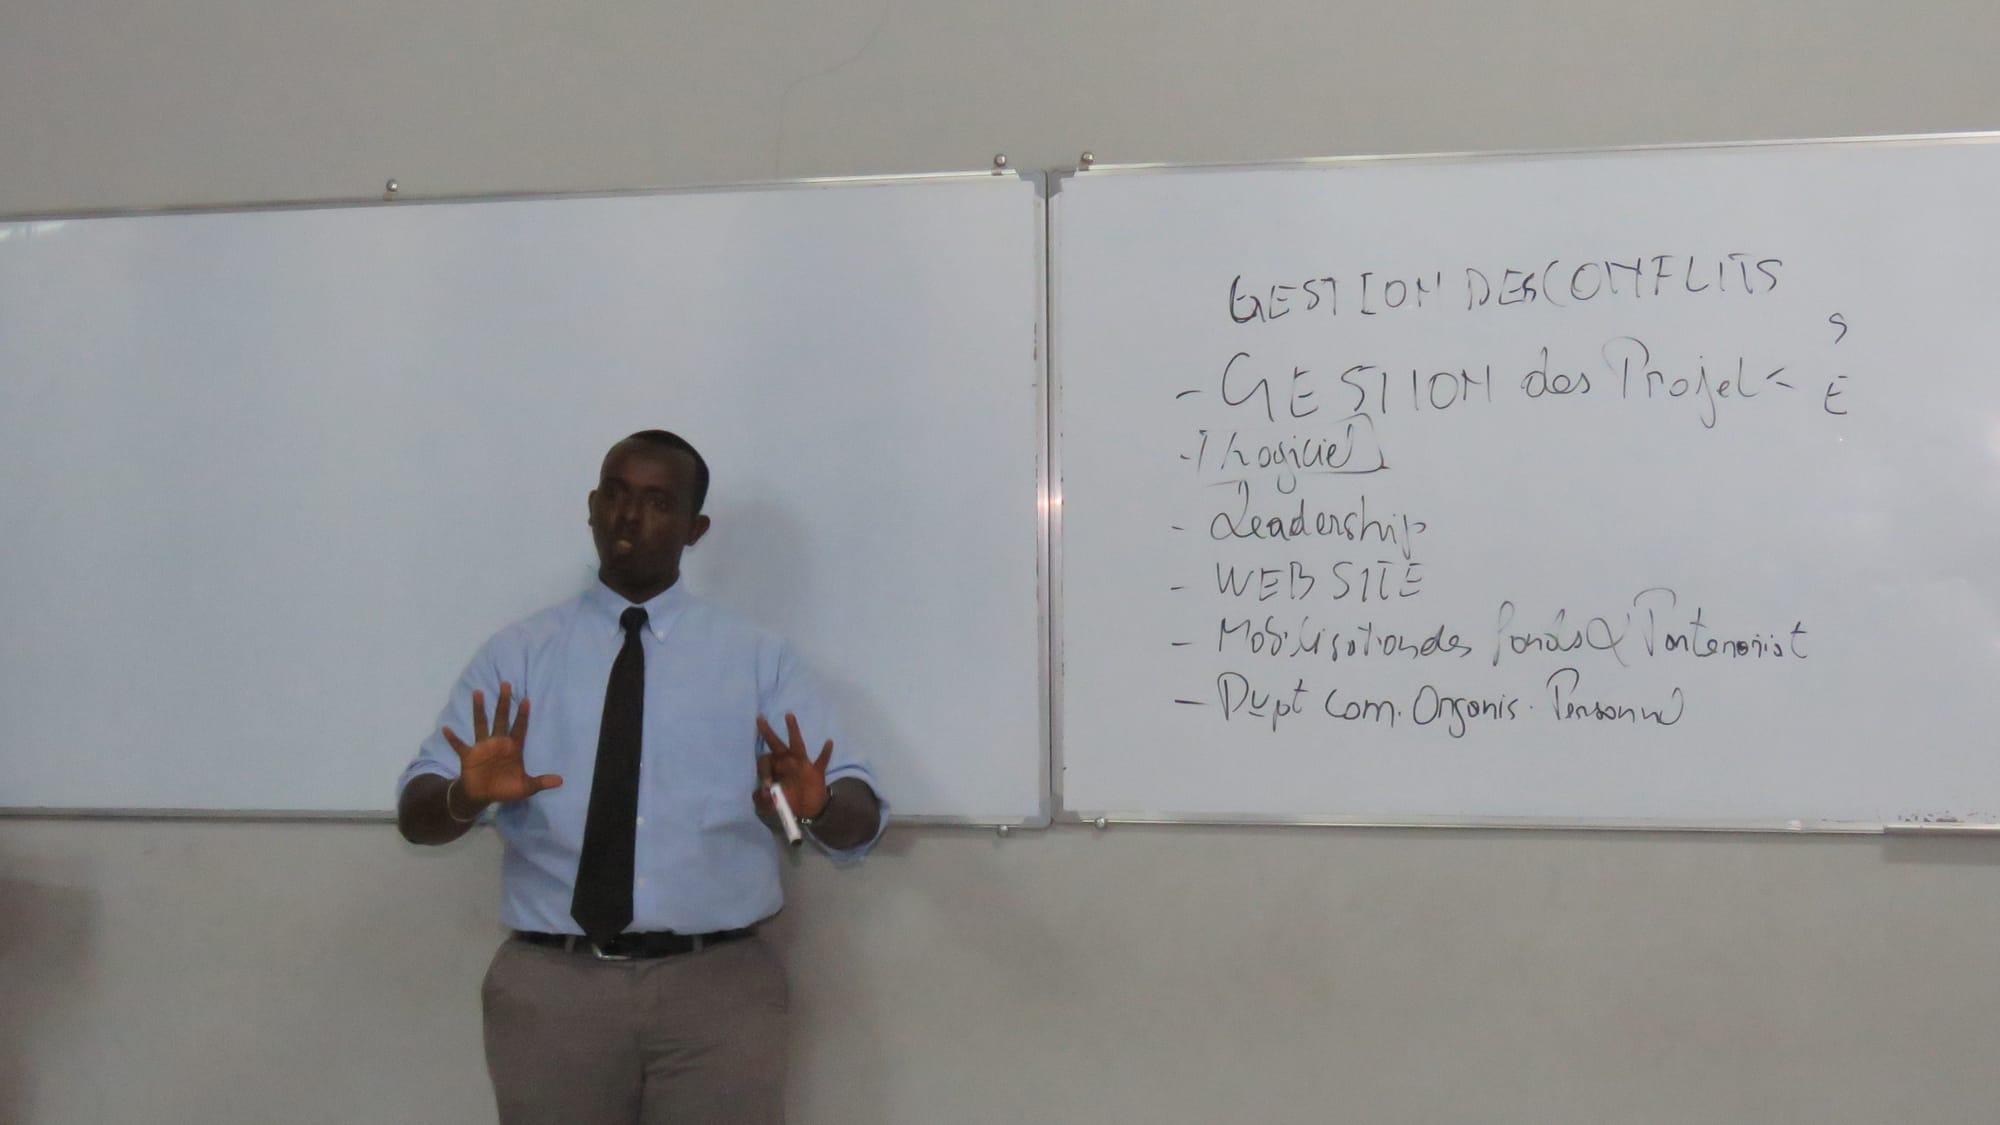 GESTION DES CONFLITS
- GESTION des Projet < S E
- Logiciel
- Leadership
- WEB SITE
- Mobilisation des fonds & Partenariat
- Dvpt com. Organis. Personnel